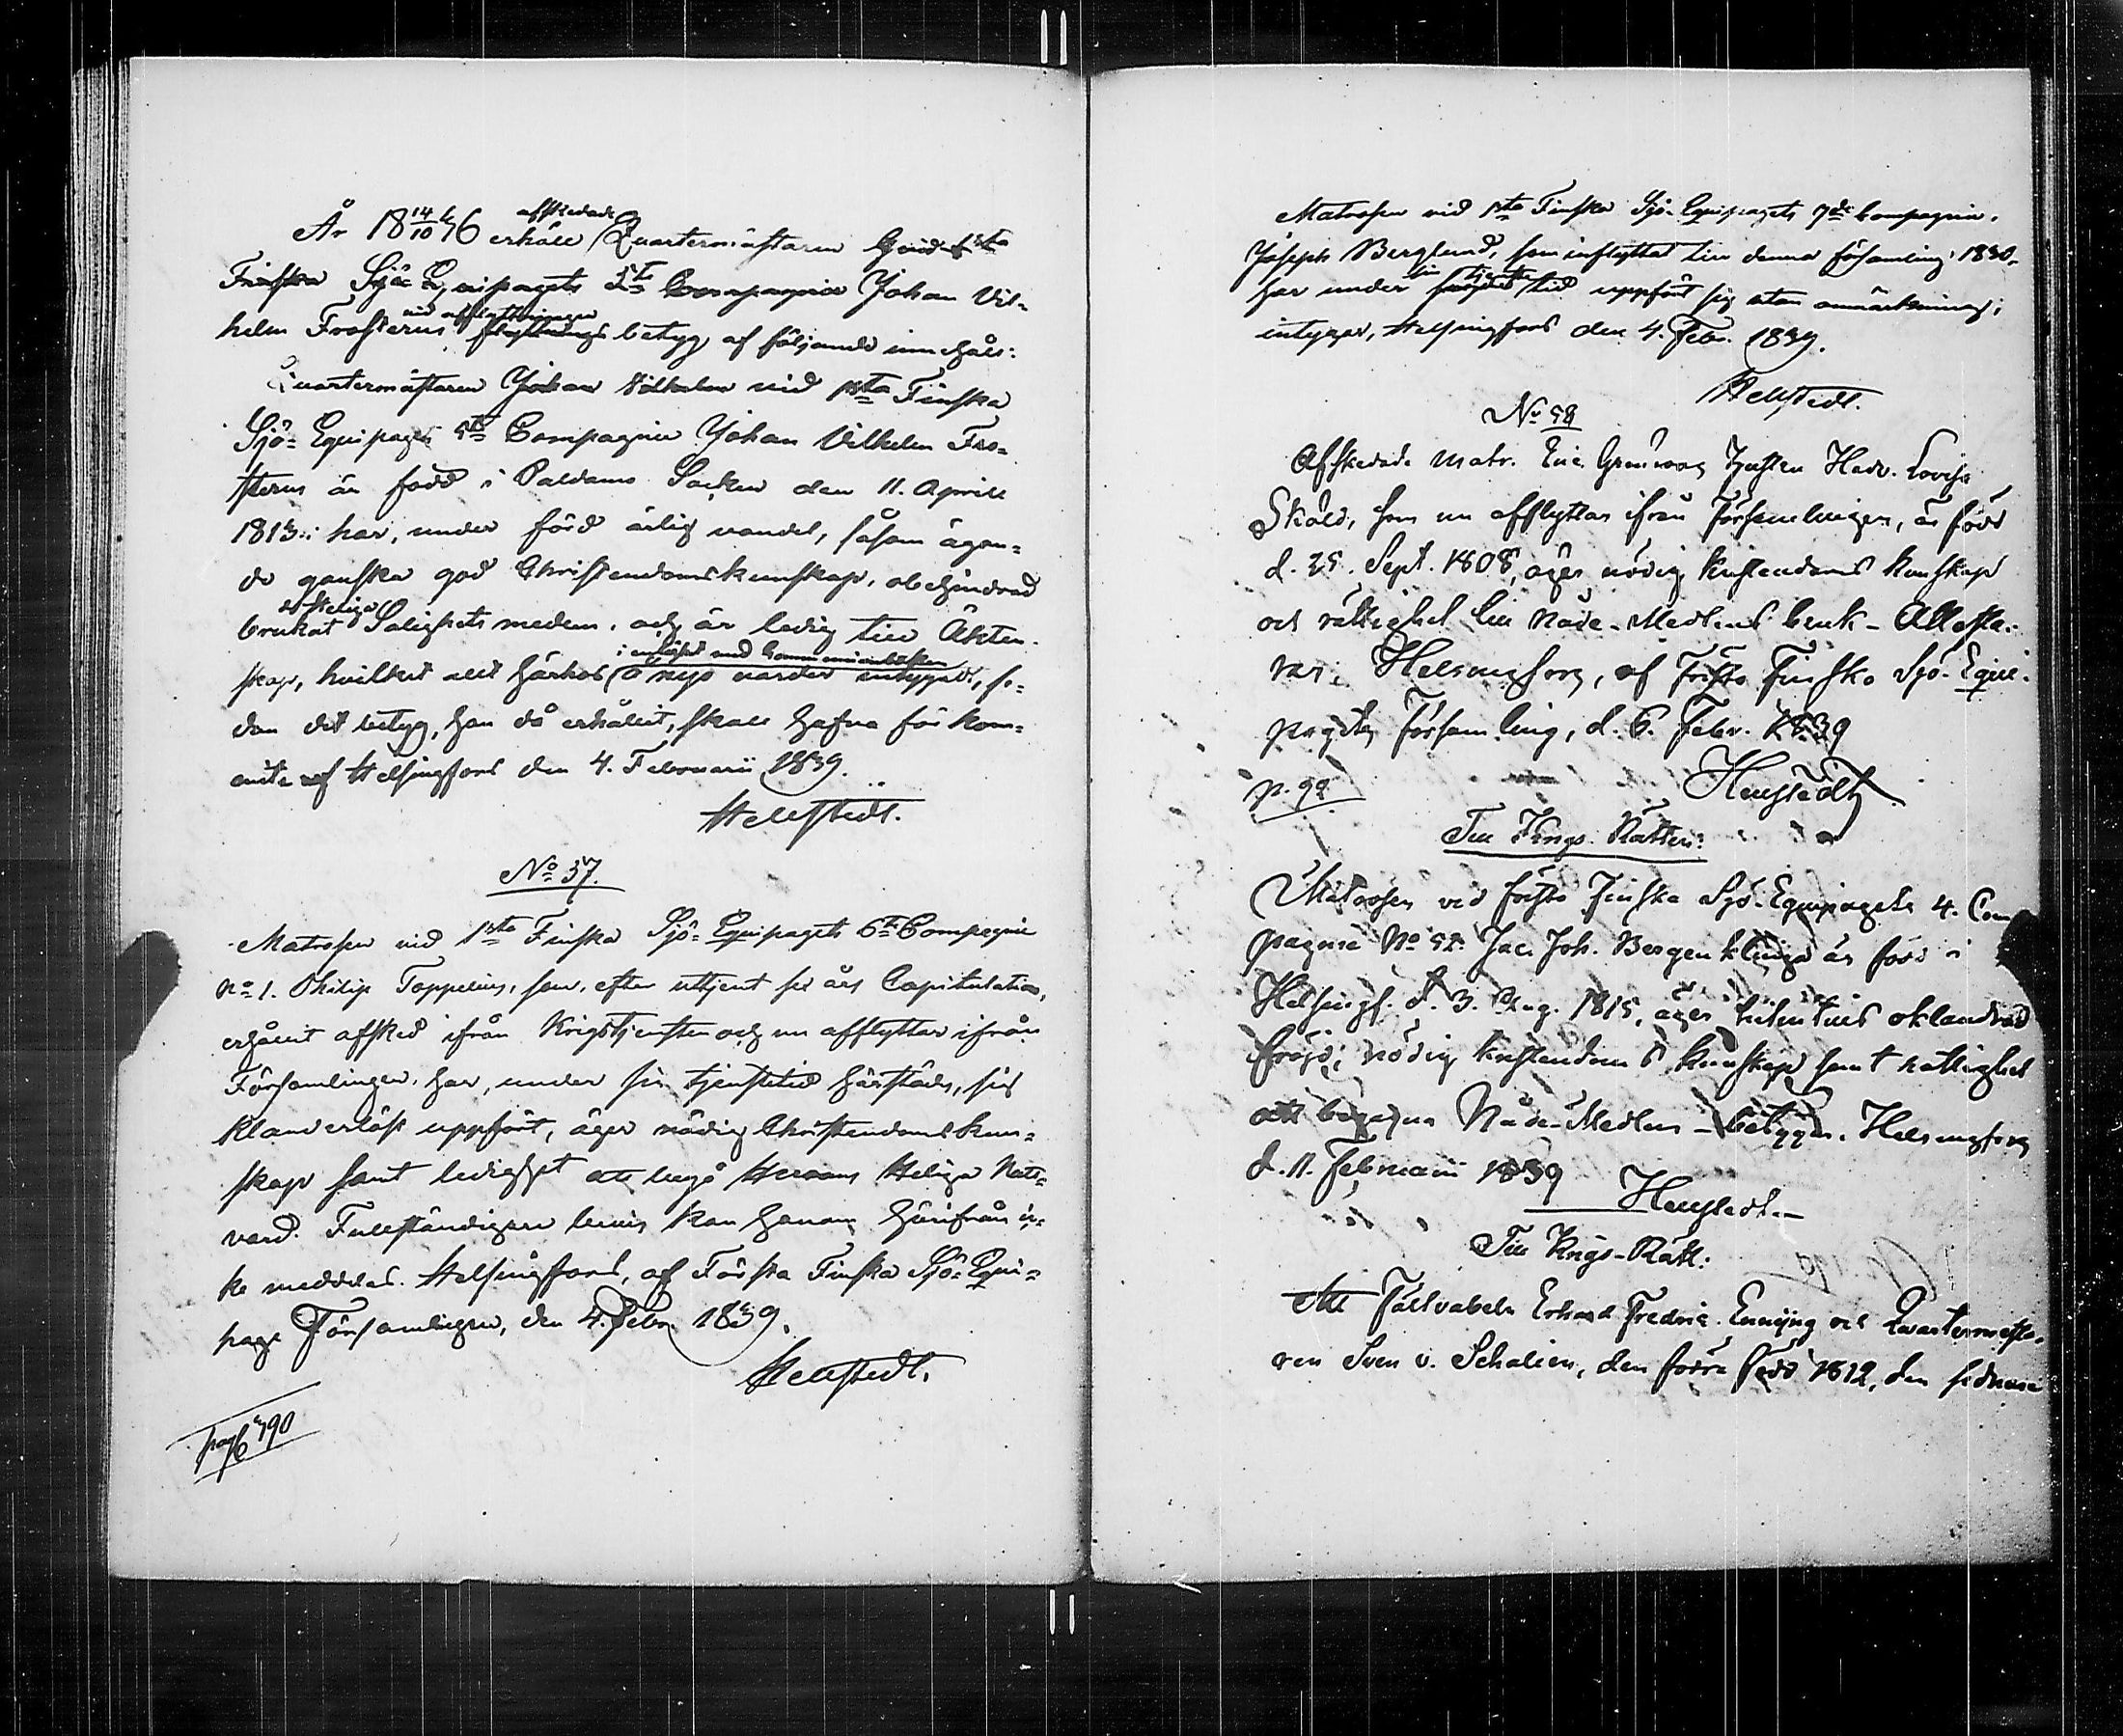 År 18 14/10 36 erhöll afskedade Quartermästaren vid 1sta
Finska Sjö-Equipagets 5te Compagnie Johan Vil-
helm Frosterus vid afflyttningen flyttnings betyg af följande innehåll:
Quartermästaren Johan Vilhelm vid 1sta Finska
Sjö-Equipagets 5te Compagnie Johan Vilhelm Fro-
sterus är född i Paldamo Socken den 11. Aprill
1813: har, under förd ärlig vandel, såsom ägan-
de ganska god Christendomskunskap, obehindrad
brukat Salighetsmedlen, och är ledig till Äkten-
skap, hvilket allt härhos i enlighet med Communionboken å nyo varder intygadt, se-
dan det betyg, han då erhållit, skall hafva för kom-
mit af Helsingfors den 4. Februarii 1839.
Hellstedt.
No 37.
Matrosen vid 1sta Finska Sjö-Equipagets 6te Compagnie
No 1. Philip Toppelius, som, efter uttjent sex års Capitulation,
erhållit afsked ifrån Krigstjensten och nu afflyttar ifrån
Församlingen, har, under sin tjenstetid härstädes, sig
klanderlöst uppfört, äger nödig Christendomskun-
skap samt ledighet att begå Herrans Heliga Natt-
vard. Fullständigare bevis kan honom härifrån ic-
ke meddelas. Helsingfors, af Första Finska Sjö-Equi-
page Församlingen, den 4. Febr. 1839.
Hellstedt.
pag 190
Matrosen vid 1sta Finska Sjö-Equipagets 7de Compagnie,
Joseph Berglund, som inflyttat till denna församling 1830,
har under sin tjenste tid uppfört sig utan anmärkning;
intygar, Helsingfors den 4. Febr. 1839.
Hellstedt.
No 58
Afskedade Matr. Eric Grönvags hustru Hedv. Lovisa
Sköld, som nu afflyttar ifrån Församlingen, är född
d. 25. Sept. 1808, äger nödig kristendoms kunskap
och rättighet till Nåde-Medlens bruk - Atteste-
ras. Helsingfors, af Första Finska Sjö-Equi-
pagets Församling, d. 6. Febr. 1839
Hellstedt
p. 92
Till Krigs-Rätten:
Matrosen vid första Finska Sjö-Equipagets 4. Com
pagnie No 52. Jac. Joh. Bergenklinga är född i
Helsingf. d. 3. Aug. 1815, äger hitintills oklandrad
frejd, nödig kristendoms kunskap samt rättighet
att begagna Nåde-Medlen - betygar. Helsingfors
d. 11. Februarii 1839
Hellstedt.
Till Krigs-Rätt:
Att Fältvabeln Erhard Fredric och Quartermästa-
ren Sven v. Schalien, den förre född 1812, den sednare